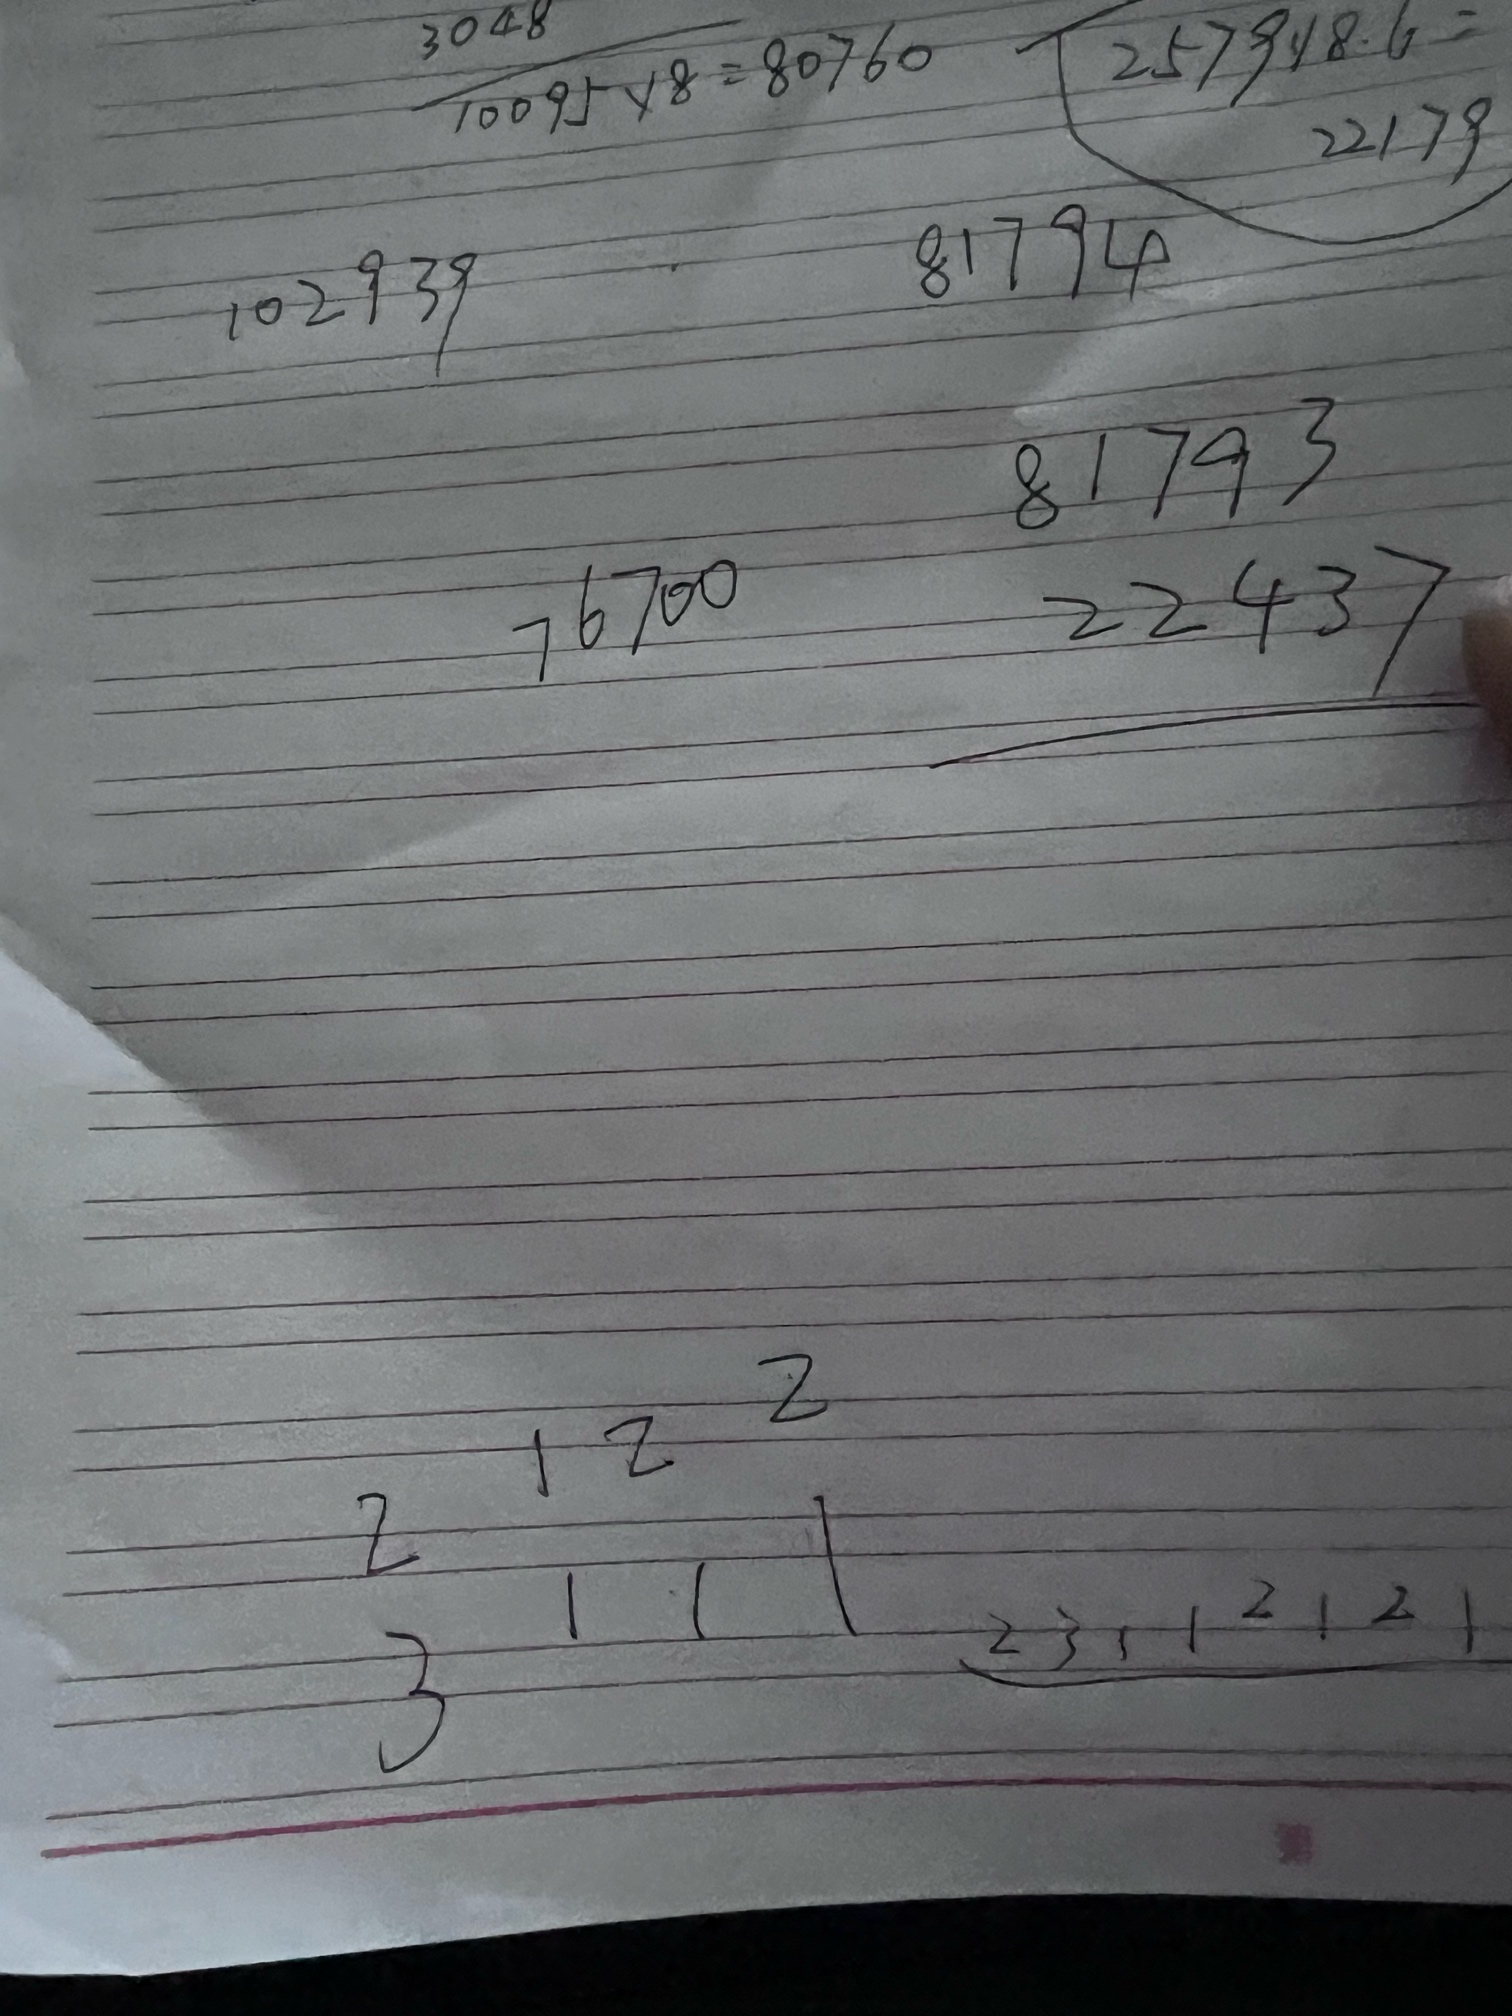 3048
10095×8=80760
2579×8.6=
22179
102939
81794
81793
76700
22437
2
1 2
2
1 1 1
2 3 1 1 2 1 2 1
3